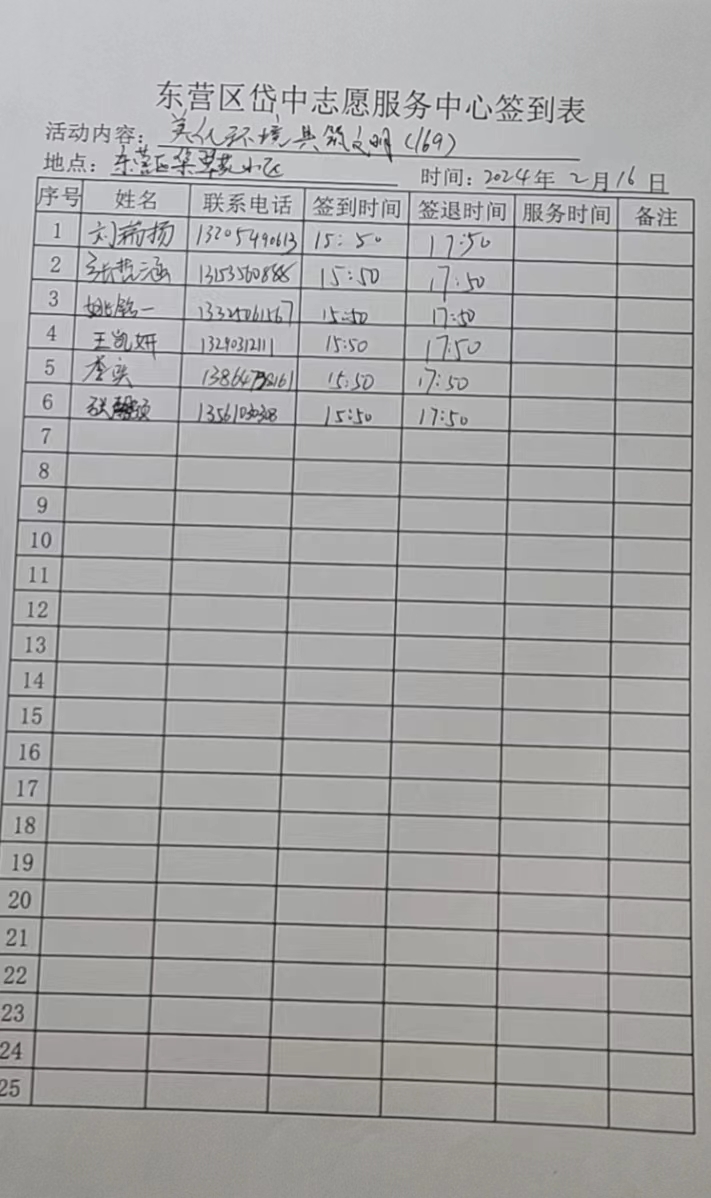 东营区岱中志愿服务中心签到表
活动内容：美化环境共筑文明（169）
地点：东营区翠苑小区 时间：2024年2月16日
序号 姓名 联系电话 签到时间 签退时间 服务时间 备注
1 刘扬 13205490613 15:50 17:50
2 张哲涵 13153560888 15:50 17:50
3 姚铭一 13325061567 15:50 17:50
4 王凯妍 13290312111 15:50 17:50
5 李奕 15:50 17:50
6 张 15:50 17:50
7
8
9
10
11
12
13
14
15
16
17
18
19
20
21
22
23
24
25